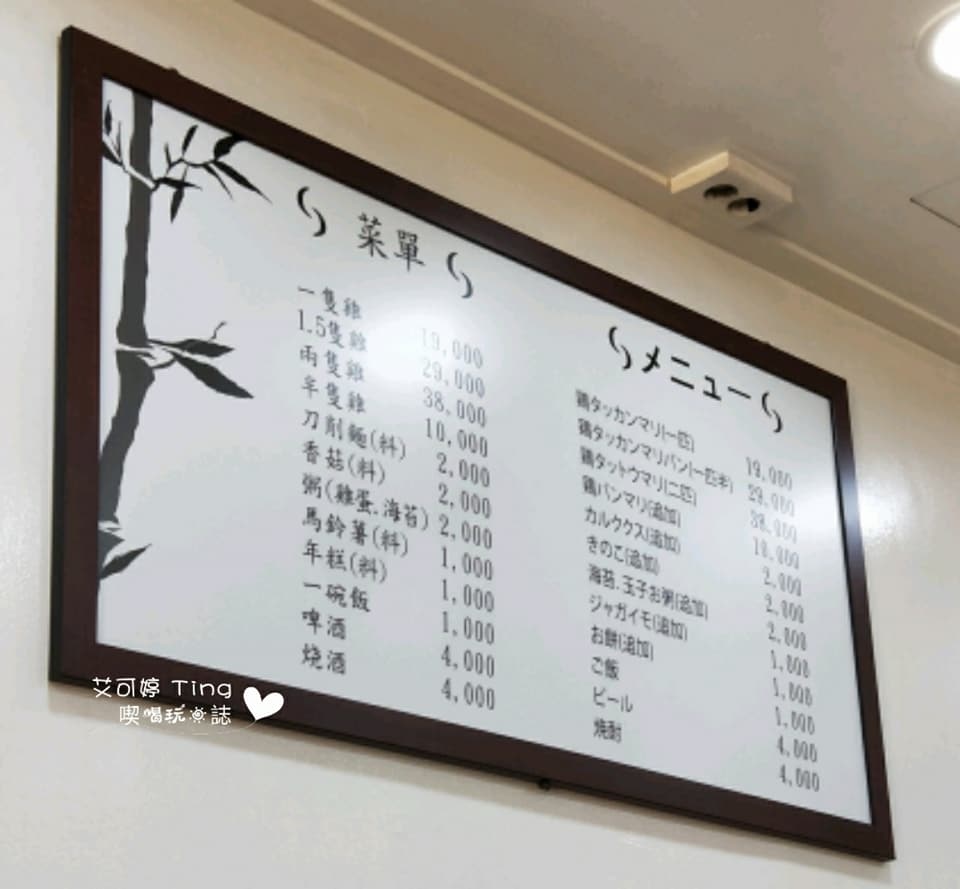 菜單
一隻雞 19,000
1.5隻雞 29,000
兩隻雞 38,000
半隻雞 10,000
刀削麵(料) 2,000
香菇(料) 2,000
粥(雞蛋.海苔) 2,000
馬鈴薯(料) 1,000
年糕(料) 1,000
一碗飯 1,000
啤酒 4,000
燒酒 4,000
メニュー
鶏タッカンマリ(一匹) 19,000
鶏タッカンマリバン(一匹半) 29,000
鶏タットウマリ(二匹) 38,000
鶏バンマリ(追加) 10,000
カルククス(追加) 2,000
きのこ(追加) 2,000
海苔.玉子お粥(追加) 2,000
ジャガイモ(追加) 1,000
お餅(追加) 1,000
ご飯 1,000
ビール 4,000
焼酎 4,000
艾可婷 Ting
喫喝玩誌